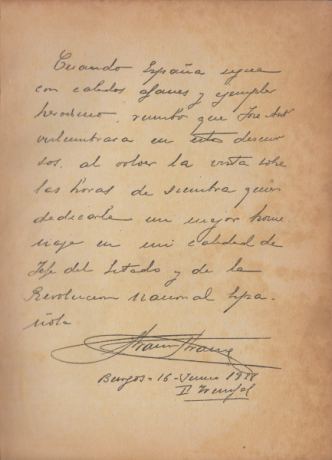 Cuando España sigue
con callados afanes y ejemplar
heroismo, rumbo que José Antº
vislumbrara en estos discur
sos, al volver la vista sobre
las horas de siembra quiero
dedicarle un mejor home
naje en mi calidad de
Jefe del Estado y de la
Revolucion Nacional Espa-
ñola
Burgos - 16 - Junio 1938
II Triunfal